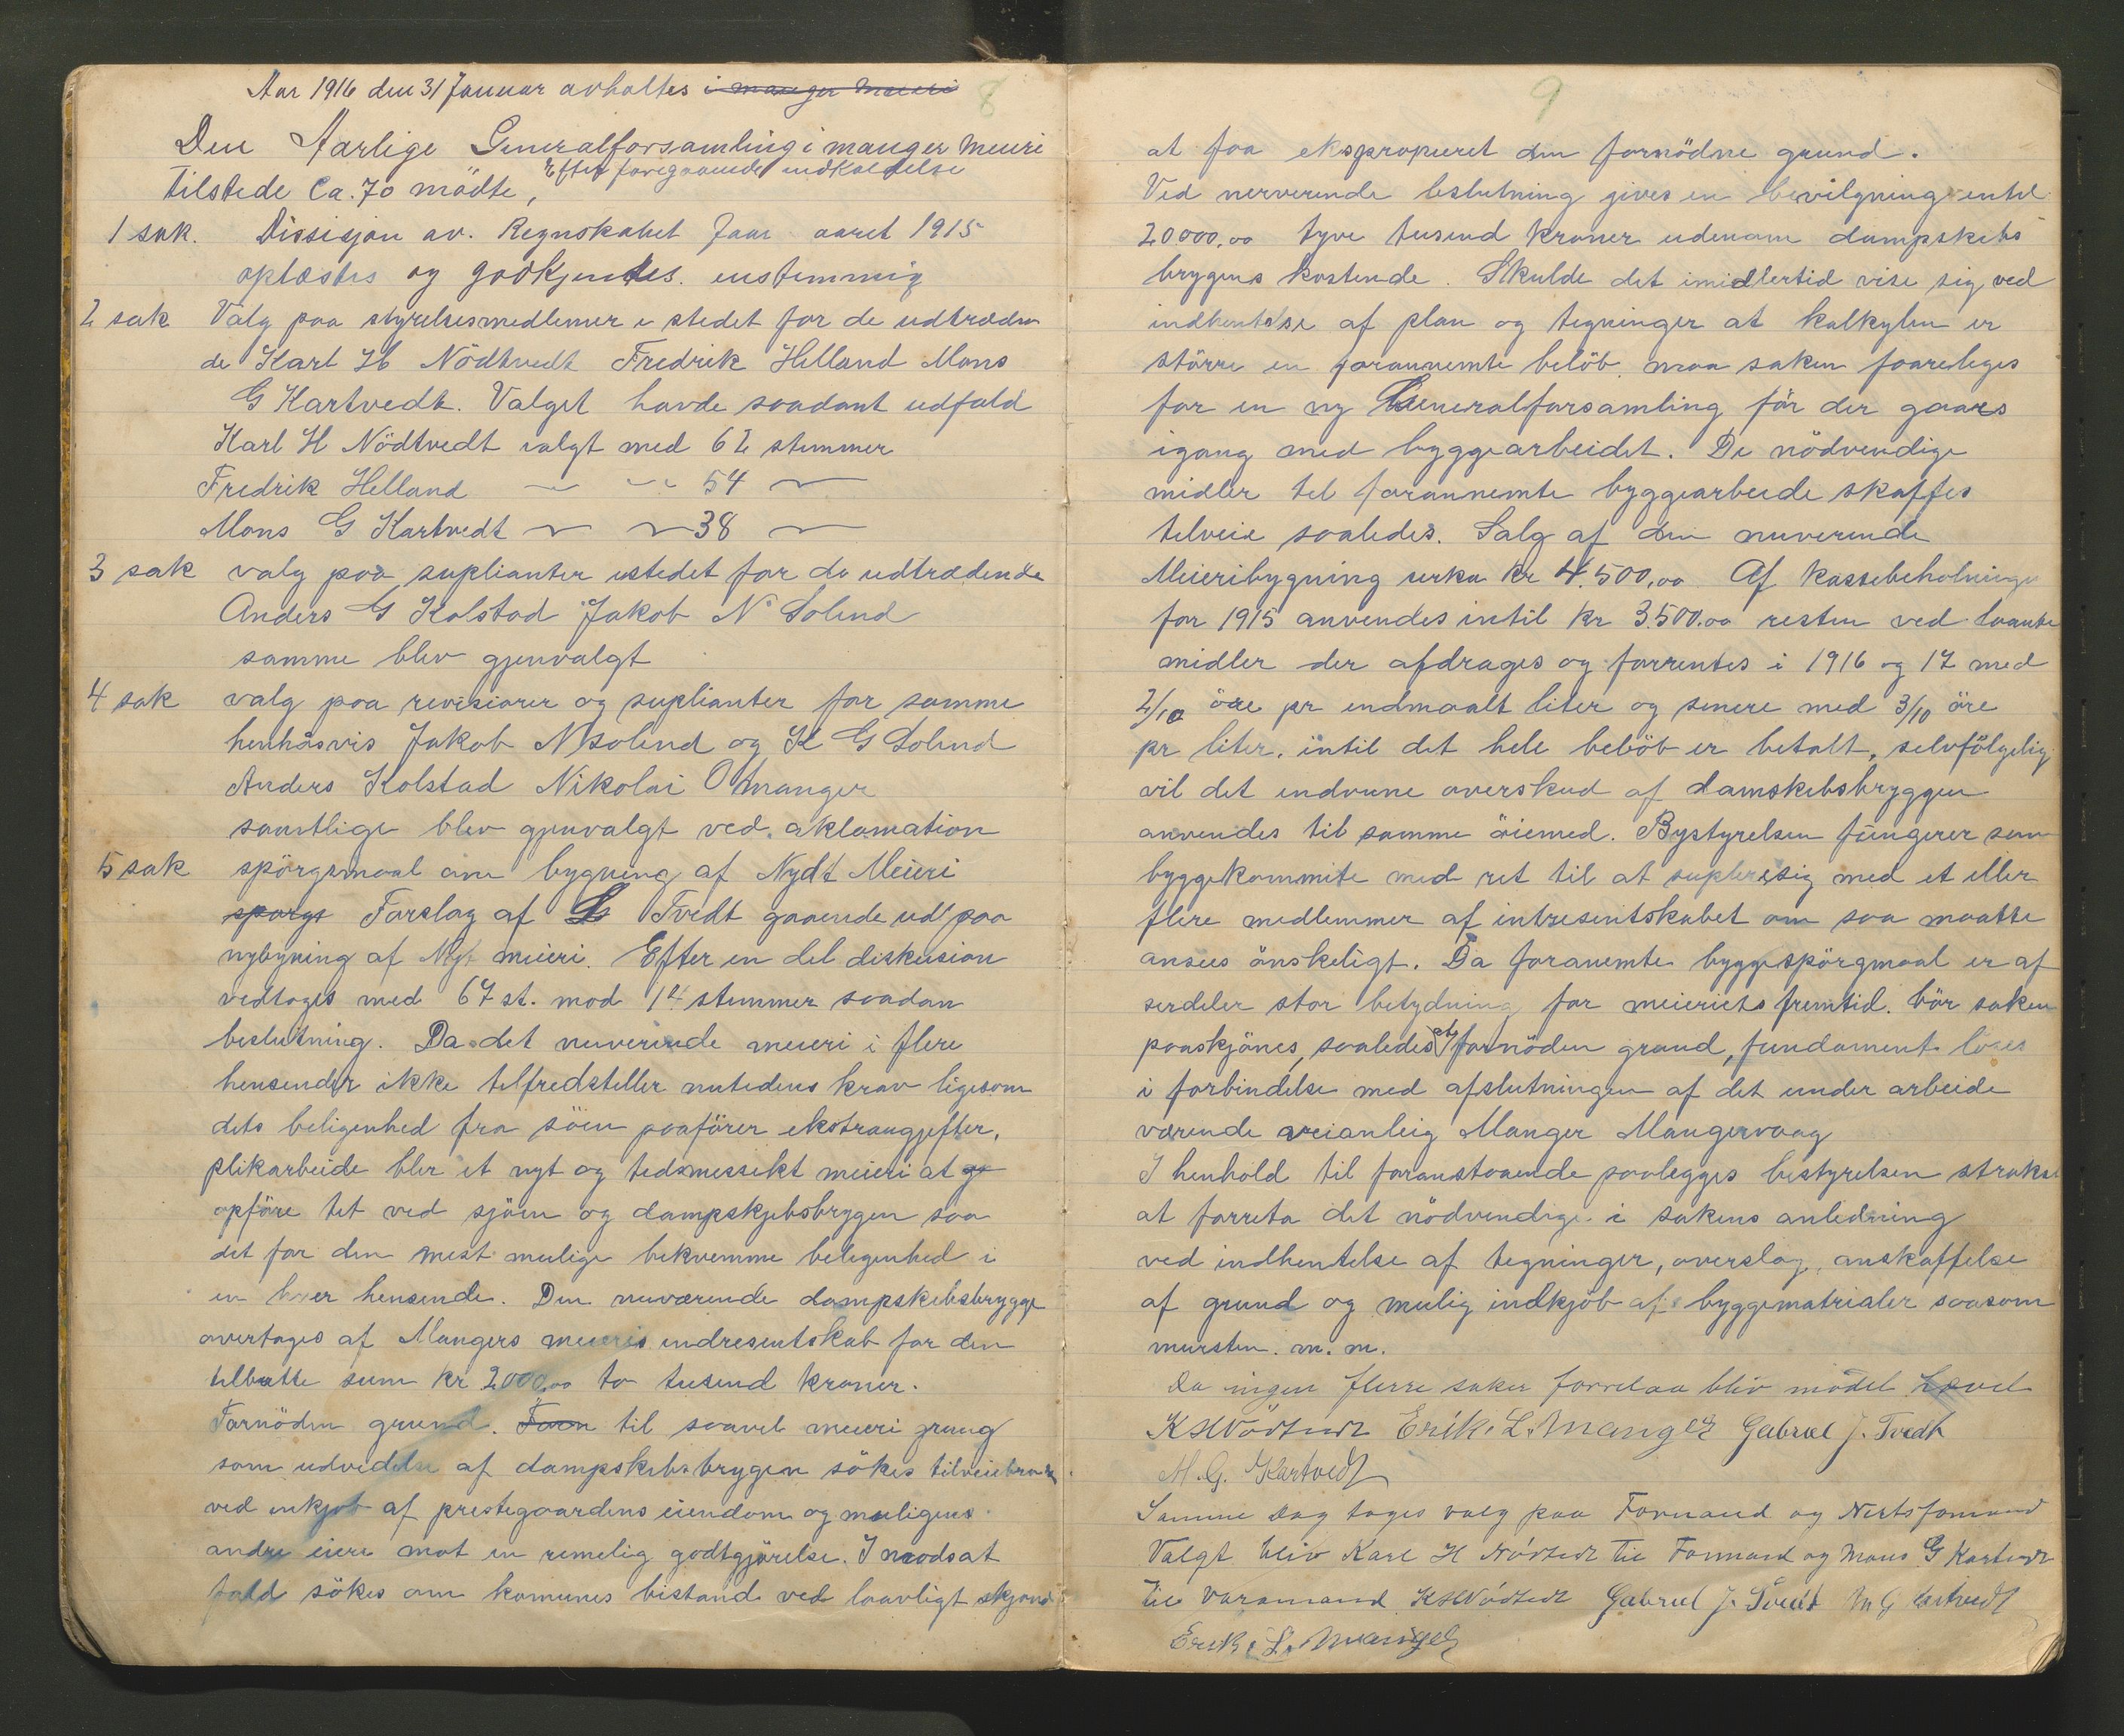 Aar 1916 den 31 Januar avholtes i manger meieri
8
Den Aarlige Generalforsamling i manger meieri
Efter foregaaende indkaldelse
Tilstede ca. 70 mödte,
1 sak. Dissisjon av. Regnskabet Jaar aaret 1915
oplæstes og godkjentes. enstemmig
2 sak Valg paa styrelsesmedlemer i stedet for de udtræden
de Karl H Nödtvedt Fredrik Helland Mons
G Kartvedt. Valget havde saadant udfald
Karl H Nödtvedt valgt med 62 stemmer
Fredrik Helland — — 54 —
Mons G Kartvedt — — 38 —
3 sak valg paa suplianter istedet for de udtrædende
Anders G Kolstad Jakob N Solend
samme blev gjenvalgt
4 sak valg paa revisiorer og suplianter for samme
henhåsvis Jakob N Solend og K G Solend
Anders Kolstad Nikolai O Manger
samtlige blev gjenvalgt ved. aklamation
5 sak spörgsmaal om bygning af Nydt Meieri
sporgs Forslag af L Tvedt gaaende ud paa
nybyning af Nyt meieri. Efter en del diskusion
vedtages med 67 st. mod 14 stemmer saadan
beslutning. Da det nuverende meieri i flere
hensender ikke telfredsteller nutedens krav ligesom
dets beligenhed fra söen paaförer ekstraugjefter,
plikarbeide blir et nyt og tedsmessikt meieri at gj
opföre tet ved sjöen og dampskjebsbrygen saa
det far den mest mulige bekvemme beligenhed i
en hver hensende. Den nuværende dampskebsbrygge
overtages af Mangers meieris indresentskab for den
telbutte sum kr 2000,00 to tusend kroner.
Fornöden grund. Foron til saavel meieri grung
som udvidelse af dampskebsbrygen sökes tilveiebrakt
ved inkjob af prestegaardens eiendom og muligens
andre eiere mot en remelig godtgjörelse. I modsat
fald sökes om komunes bistand ved loavligt skjond
9
at faa ekspropieret den fornödne grund.
Ved nerverende beslutning gives en bevilgning intel
20000,00 tyve tusend kroner udenom dampskebs
brygens kostende. Skulde det imidlertid vise sig ved
indhentelse af plan og tegninger at kalkylen er
större en forannemte belöb. maa saken foareleges
for en ny Generalforsamling för der gaaes
igang med byggearbeidet. De nödvendige
midler tel forannemte byggearbeide skaffes
telveie saaledes. Salg af den nuverende
Meieribygning serka kr 4.500,00 Af kassebeholninge
for 1915 anvendes intil kr 3.500.00 resten ved laante
midler der afdrages og forrentes i 1916 og 17 med
2/10 öre pr indmaalt liter og senere med 3/10 öre
pr liter. intil det hele belöb er betalt, selvfölgelig
vil det indvune overskud af damskebsbryggen
anvendes til samme öiemed. Bystyrelsen fungerer som
byggekommite med ret til at suplere sig med et eller
flere medlemmer af intresentskabet om saa maatte
ansees önskeligt. Da foranemte byggespörgmaal er af
serdeler stor betydning for meieriets fremtid. bör saken
paaskjönes, saaledes at fornöden grund, fundament loses
i forbindelse med afslutningen af det under arbeide
værende veianleig Manger Mangervaag
I henhold til foranstaaende paalegges bestyrelsen strakse
at forreta det nödvendige i sakens anledning
ved indhentelse af tegninger, overslag, anskaffelse
af grund og mulig indkjöb af byggematrialer saasom
mursten. m. m.
Da ingen flerre saker forrelaa blev mödet hævet
K H Nödtvedt Erik. L. Manger Gabriel J. Tvedt
M. G. Kartvedt
Samme dag toges valg paa Formand og Nestformand
Valgt blev Karl H Nödtvedt til Formand og Mons G Kartvedt
til Varamand K H Nödtvedt Gabriel J. Tvedt M G Kartvedt
Erik L. Manger